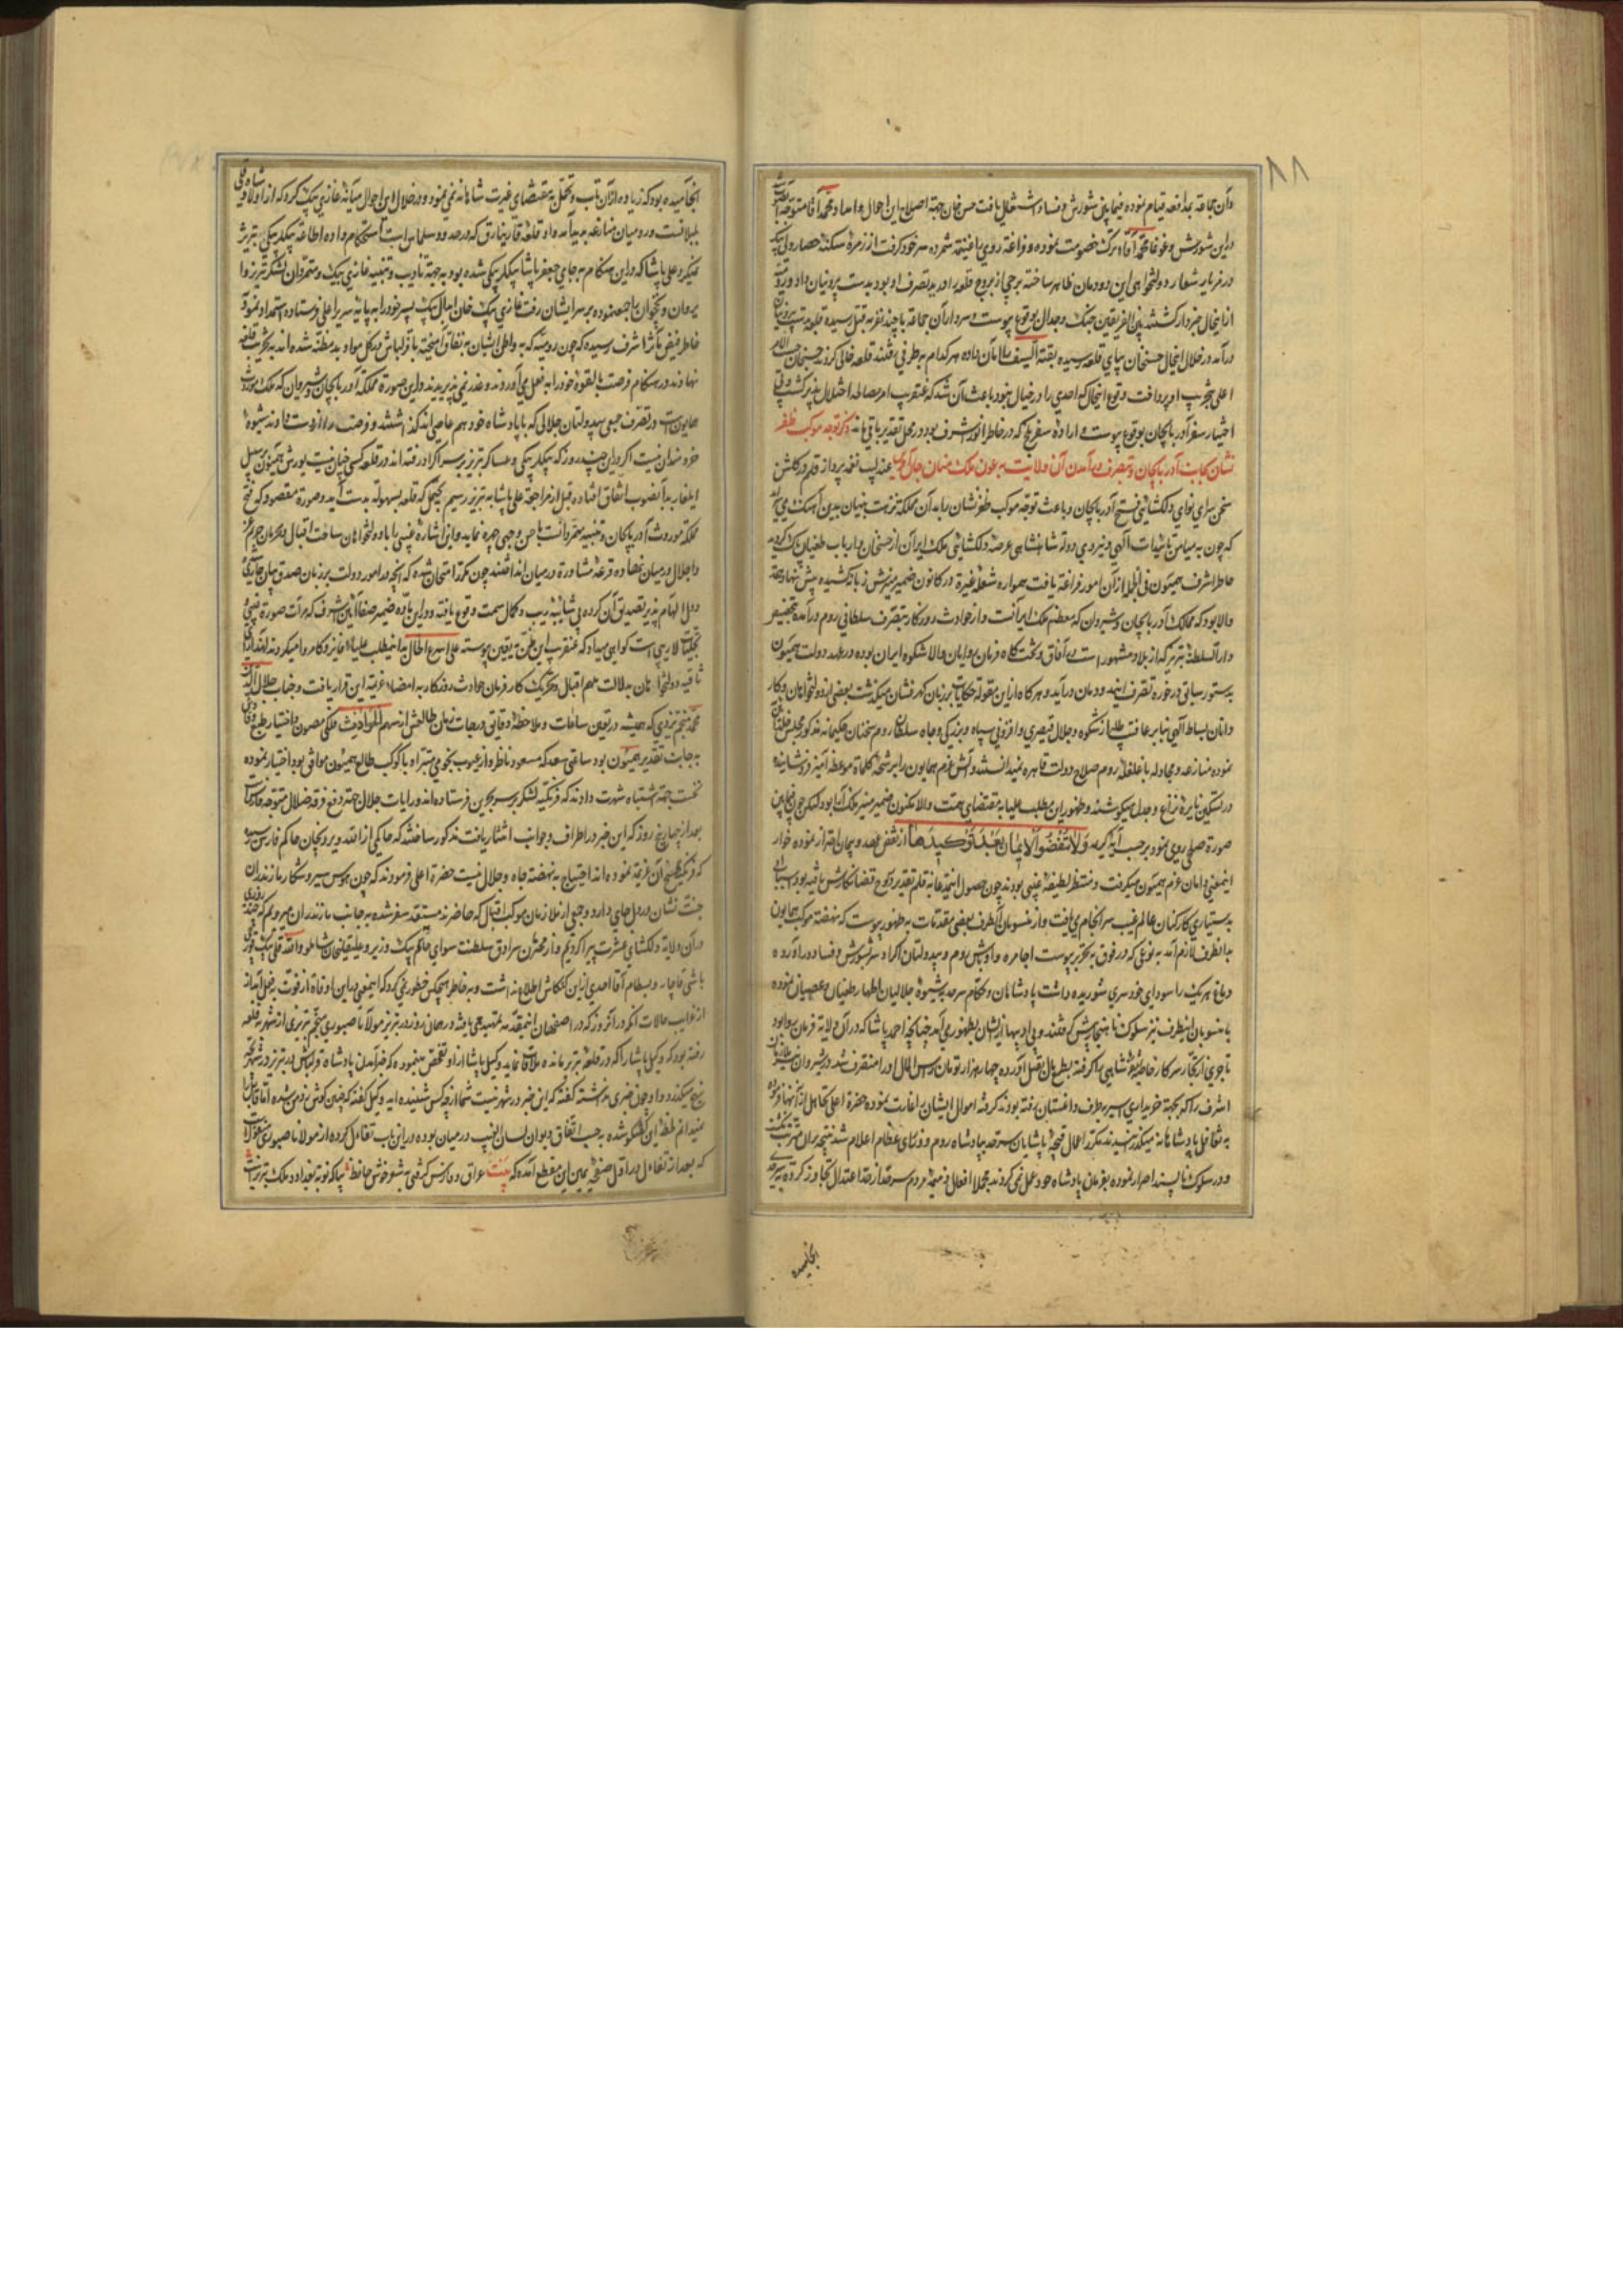 ۸۸
وآن جماعة بمدافعه قیام نموده فیمابین شورش و فساد اشتعال یافت حسن خان جهة اصلاح این احوال و امداد محمد آقا متوجه
دراین شورش و غوغا محمد آقا ترک خصومت نموده و فراغة رومی را غنیمة شمرده سر خود گرفت از زمرهٔ سکنهٔ حصار ولی بیک
در فریاد شعار دولتخواهی این دودمان ظاهر ساخته برجی از بروج قلعه را که بتصرف او بود بدست بیرونیان داد و رومیه
ازاینحال خبردار گشتند بین الفریقین جنگ و جدال بوقوع پیوست و سردار آن جماعة با چند نفر به قتل رسیده قلعه بتصرف بیرونیان
درآمد در خلال اینحال حسنخان بپای قلعه رسیده بقیة السیف را امان داده هر کدام به طرفی رفتند قلعه خالی کردند حسنخان حسب الامر
اعلی بتخریب او پرداخت وقوع اینحال که احدی را در خیال نبود باعث آن شد که عنقریب امر مصالحه اختلال پذیر گشت و
اختیار سفر آذربایجان بوقوع پیوست و اراده سفری که در خاطر انور اشرف بود در محل تقدیر باقی ماند ذکر توجه موکب ظفر
نشان بجانب آذربایجان و بتصرف درآمدن آن ولایت به عون ملک منان جل آلاؤه عندلیب نغمه پرداز قلم در گلشن
سخن سرای نوای دلگشائی فتح آذربایجان و باعث توجه موکب ظفرنشان را بدآن مملکة نزهت بنیان بدین آهنگ می سراید
که چون به میامن تائیدات الهی و نیروی دولة شاهنشاهی عرصهٔ دلگشای ملک ایران از خس خان و ارباب طغیان پاک گردید
خاطر اشرف همیون فی الجمله از آن امور فراغة یافت همواره شعلهٔ غیرة در کانون ضمیر منیرش زبانه کشیده پیش نهاد همة
والا بود که ممالک آذربایجان و شیروان که معظم ملک ایرانست و از حوادث روزگار بتصرف سلاطین روم درآمده بتخصیص
دارالسلطنهٔ تبریز که از بلاد مشهور است در آفاق و تختگاه فرمان روایان والاشکوه ایران بوده در عهد دولت همیون
بدستور سابق در حوزه تصرف این دودمان درآید و هرگاه از این مقوله حکایات بر زبان گهرفشان میگذشت بعضی از دولتخواهان و کار
دانان بساط آگهی بنابر عافیت طلبی از شکوه و جلال قیصری و افزونی سپاه و بزرگی و جاه سلطان روم سخنان حکیمانه مذکور مجلس
نموده منازعه و مجادله با علقلهٔ روم صلاح دولت قاهره نمیدانستند و آتش عزم همایون را برشحهٔ کلمات موعظه آمیز فرونشانیده
در تسکین نایرهٔ نزاع و جدال میکوشیدند و ظهور این مطلب علیا به مقتضای همت والا مکنون ضمیر منیر ملک آرا بود لیکن چون فیمابین
صورة صلحی روی نمود برحسب آیه کریمه وَلَا تَنْقُضُوا الْأَیْمَانَ بَعْدَ تَوْکِیدِهَا از نقض عهد و پیمان احتراز نموده خوار
اینمعنی دامان عزم همیون میگرفت و منتظر لطیفهٔ غیبی بودند چون حصول این مدعا به قلم تقدیر بر لوح قضا نگارش یافته بود اسباب
به دستیاری کارکنان عالم غیب سرانجام می یافت و از منسوبان آنطرف بعضی مقدمات به ظهور پیوست که نهضة موکب همایون
بدانطرف لازم آمد به نوعی که در فوق به تحریر پیوست اجامره و اوباش روم و بیدولتان اکراد سر بشورش و فساد درآورده
دماغ هر یک را سودای خودسری شوریده داشت پادشاهان و حکام سرحد بشیوهٔ جلالیان اظهار طغیان و عصیان نموده
با منسوبان اینطرف نیز سلوک ناهنجار پیش گرفتند و بی ادبیها از ایشان بظهور می آمد چنانچه احمد پاشا که در آن ولایة فرمان روا بود
تاجری از تجار سرکار خاصهٔ شریفهٔ شاهی را گرفته بطمع مال بقتل آورده چهار هزار تومان رأس المال او را متصرف شد و شیروان
اشرف را که به جهة خریداری اسیر به طرف داغستان رفته بودند گرفته اموال ایشان را غارت نموده حضرة اعلی تجاهل از آنها فرموده
به تغافل پادشاهانه میگذرانیدند مکرر اعمال قبیحهٔ پاشایان سرحد به پادشاه روم و وزرای عظام اعلام شد نتیجه بران مترتب نگشت
و در سلوک ناپسند اصرار نموده بفرمان پادشاه خود عمل نمی کردند مجملا افعال ذمیمهٔ مردم سرحد از حد اعتدال تجاوز کرده
انجامیده بود که زیاده از آن تاب و تحمل به مقتضای غیرت شاهانه نمی نمود و در خلال این احوال میانهٔ غازی بیک کرد که از اولاد شاه قلی
بلیلانست و رومیان منازعه به هم رسیده او قلعهٔ قارنیارق که در حدود سلماس است استحکام داده اطاعة بیگلربیگی تبریز
نمیکرد علی پاشا که در این هنگام به جای جعفر پاشا بیگلربیگی شده بود به جهة تأدیب و تنبیه غازی بیک و متمردان لشکر تبریز و ا
یروان و نخجوان را جمع نموده بر سر ایشان رفت غازی بیک خان ابدال بیک پسر خود را به پایهٔ سریر اعلی فرستاده استمداد نمود
خاطر فیض مآثر اشرف رسیده که چون رومیه که به واسطه ایشان به نفاق آمیخته با قزلباش در کل مواد بدمظنه شده اند به تحریک
نهاوند در هنگام فرصت بالقوهٔ خود را به فعل می آوردند و عذر نمی پذیرند در این صورة مملکة آذربایجان و شیروان که ملک موروث
همایونست در تصرف جمعی بیدولتان جلالی که با پادشاه خود هم عاصی اند گذاشتند و فرصت را از دست دادند شیوهٔ
خردمندان نیست اگر در این چند روز که بیگلربیگی و عساکر تبریز بر سر اکراد رفته اند در قلعه کسی چنان نیست یورش همیون بر سبیل
ایلغار بدانصوب اتفاق افتاده قبل از مراجعة علی پاشا به تبریز رسیم یحتمل که قلعه بسهولة بدست آید و صورة مقصود که فتح
مملکة موروث آذربایجان و تنبیه متمردانست باحسن وجهی چهره نماید و این اشاره غیبی را با دولتخواهان ساحت اقبال و محرمان حریم عز
و اجلال در میان نهاده قرعهٔ مشاورة در میان انداختند چون مکرر امتحان شده که آنچه در امور دولت بر زبان صدق بیان جاری گشته
و دل الهام پذیر تصدیق آن کرده بی شائبهٔ ریب و کمال سمت وقوع یافته و در این باب ضمیر صفا آئین اشرف که مرآت صورة غیبی
تجلیات لاریبی است گواهی میداد که عنقریب این ظن به یقین پیوسته علی اسرع الحال بدان مطلب علیا فایز و کامروا میگردند
ثاقبه دولتخواهان به دلالت ملهم اقبال و تحریک کارفرمای حوادث روزگار به امضاء عزیمة این قرار یافت و جناب جلال الدین
محمد منجم یزدی که همیشه در تعیین ساعات و ملاحظه دقایق درجات زمان طالعش از سهم الحوادث فلکی مصون و اختیار طبع وقاد
به جانب تقدیر همعنان بود ساعتی سعد که مسعود ناظر و از عیوب نجومی مبرا و با کوکب طالع همیون موافق بود اختیار نموده
نخست جهة اشتباه شهرت دادند که فرنگیه لشکر بر سر بحرین فرستاده اند و رایات جلال جهة دفع فرقه ضلال متوجه فارس است
بعد از چهار پنج روز که این خبر در اطراف و جوانب انتشار یافت مذکور ساختند که حاکمی از الله ویردیخان حاکم فارس رسیده
که فرنگیه فسخ آن عزیمة نموده اند احتیاج به نهضة جاه و جلال نیست حضرة اعلی فرمودند که چون هوس سیر و شکار مازندران
جنت نشان در دل جای دارد و جمعی از ملازمان موکب اقبال که حاضرند مستعد سفر شده به جانب مازندران میرویم که چند روزی
در آن ولایة دلگشای عشرت پیرا گردیم و از محرمان سرادق سلطنت سوای حاتم بیک وزیر و علیقلیخان شاملو و الله قلی بیک قورچی
باشی قاجار و بسطام آقا احدی از این کنکاش اطلاع نداشت و به خاطر هیچکس خطور نمی کرد که اینمعنی در این اوقاة از قوت به فعل آید
از غرایب حالات آنکه در آنروز که در اصفهان این مقدمه تمشیت می یافت در همان روز در تبریز مولانا صبوری منجم تبریزی از شهر به قلعه
رفته بود که وکیل پاشا را که در قلعهٔ تبریز مانده ملاقات نماید وکیل پاشا از او تفحص مینمود که خبر آمدن پادشاه قزلباش در تبریز در شهر
شیوع میکند و او چون خبری نداشته گفته که این خبر در شهر نیست شما از چه کس شنیده اید وکیل گفته که چنین گوش زد من شده اما قایل را
نمیدانم لحظه این گفتگو شده به حسب اتفاق دیوان لسان الغیب در میان بوده در این باب تفاءل کرده از مولانا صبوری
که بعد از تفاءل در اول صفحهٔ یمین این مقطع آمده که بیت عراق و فارس گرفتی به شعر خوش حافظ بیا که نوبة بغداد و ملک تبریزست
انجامیده